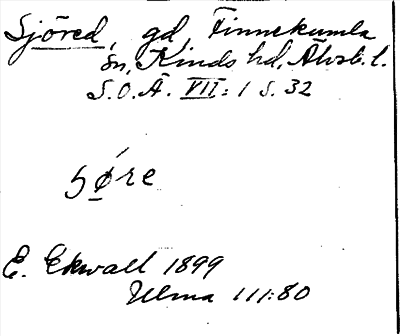 Sjöred, gd, Finnekumla
sn, Kinds hd, Älvsb. l.
S.O.Ä. VII: 1 s. 32
E. Ekwall 1899
Ulma 111:80